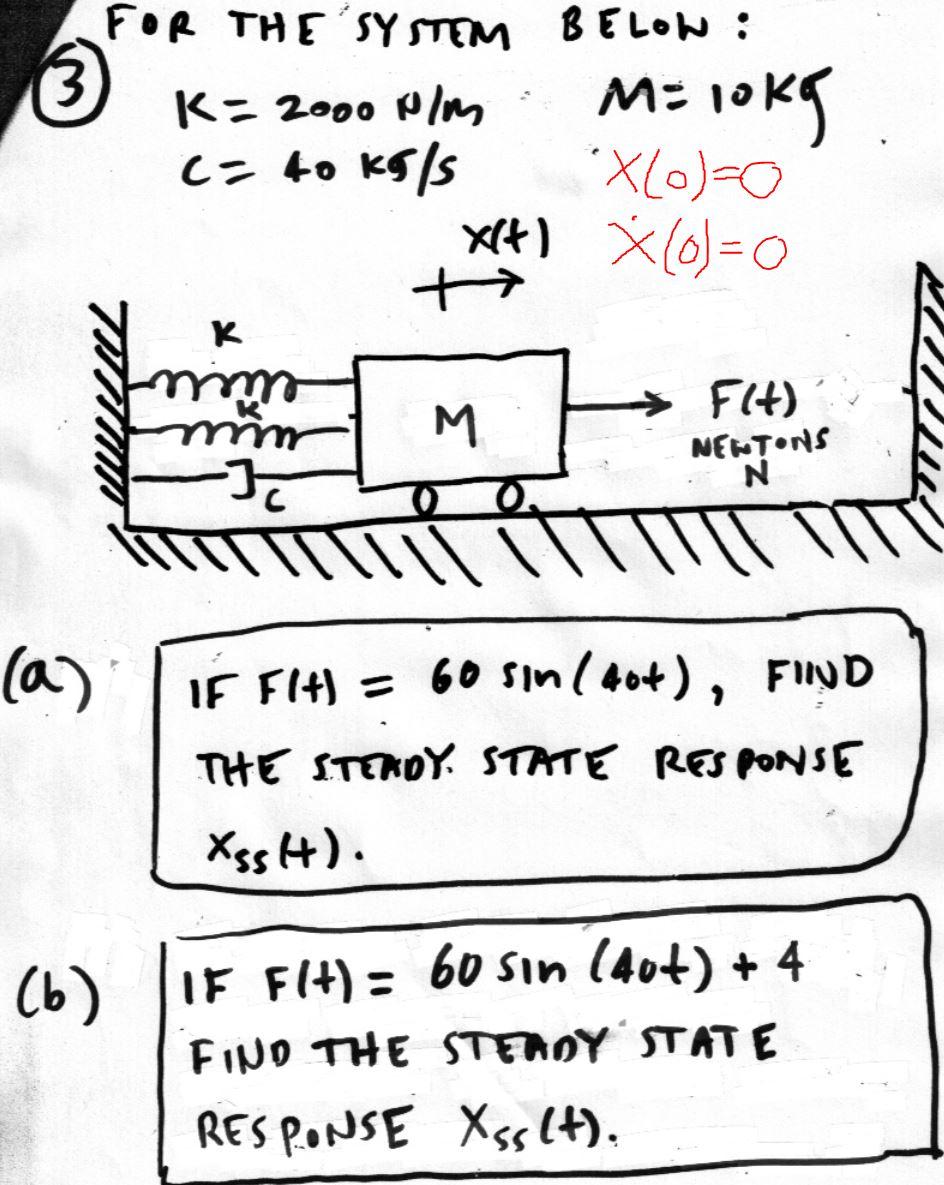 FOR THE SYSTEM BELOW:
(3)
K = 2000 N/m M = 10 Kg
C = 40 kg/s X(0)=0
x(t) Ẋ(0)=0
K
K
M
F(t)
NEWTONS
N
C
(a)
IF F(t) = 60 sin(40t), FIND
THE STEADY STATE RESPONSE
Xss(t).
(b)
IF F(t) = 60 sin(40t) + 4
FIND THE STEADY STATE
RESPONSE Xss(t).